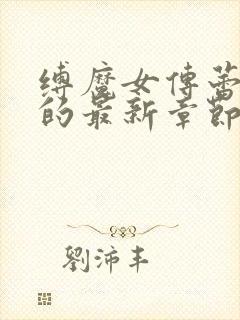 缚魔女傅蕾
的最新章節
劉沛丰